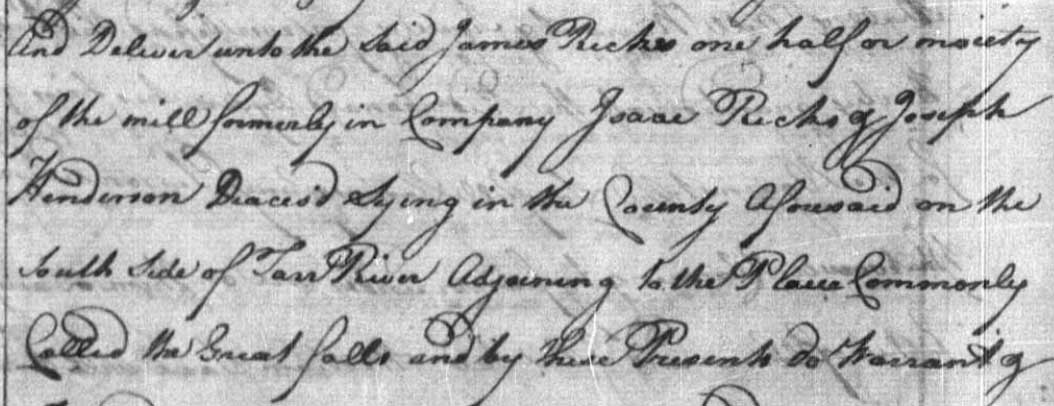 And Deliver unto the said James Ricks one half or moiety
of the mill formerly in Company Isaac Ricks & Joseph
Henderson Deaces'd Lying in the County Aforesaid on the
South Side of Tarr River Adjoining to the Place Commonly
Called the Great falls and by these Presents do Warrant &